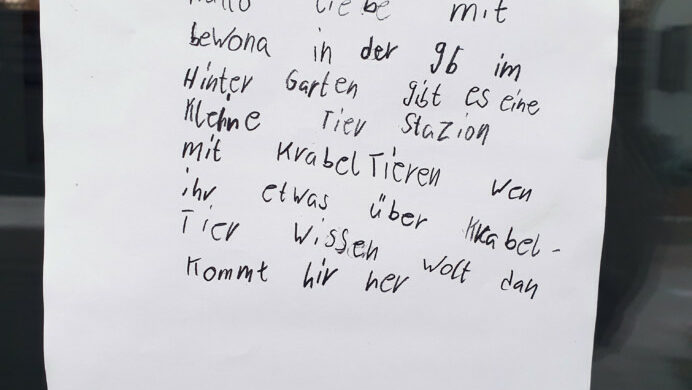 Hallo liebe mit
bewona in der 96 im
Hinter Garten gibt es eine
Kleine Tier Stazion
mit KrabelTieren wen
ihr etwas über Krabel-
Tier wissen wolt dan
Kommt hir her